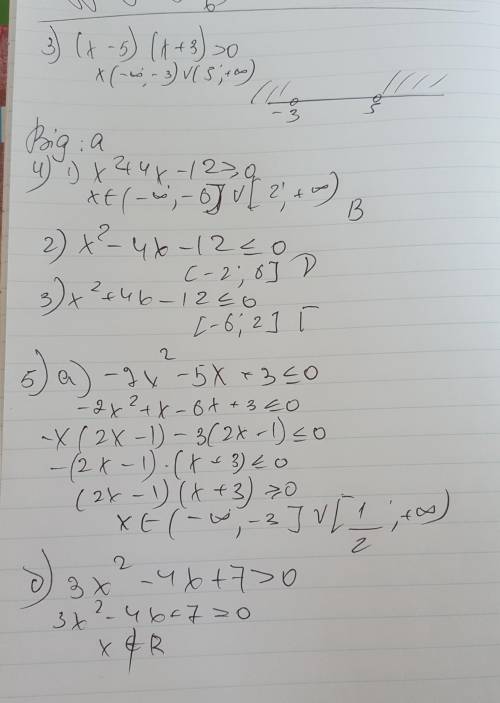 3) (x - 5) (x + 3) > 0
x (-∞; -3) ∨ (5; +∞)
-3 5
Від: а
4) 1) x² + 4x - 12 ≥ 0
x ∈ (-∞; -6] ∨ [2; +∞)
В
2) x² - 4x - 12 ≤ 0
[-2; 6] Д
3) x² + 4x - 12 ≤ 0
[-6; 2] Г
5) а) -2x² - 5x + 3 ≤ 0
-2x² + x - 6x + 3 ≤ 0
-x (2x - 1) - 3(2x - 1) ≤ 0
-(2x - 1) · (x + 3) ≤ 0
(2x - 1) (x + 3) ≥ 0
x ∈ (-∞; -3] ∨ [1/2; +∞)
б) 3x² - 4x + 7 > 0
3x² - 4x + 7 = 0
x ∉ R